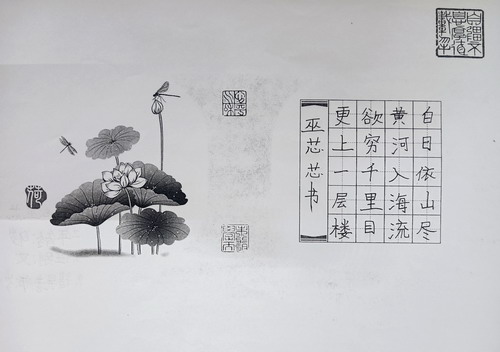 白日依山尽
黄河入海流
欲穷千里目
更上一层楼
巫芯芯书
荷